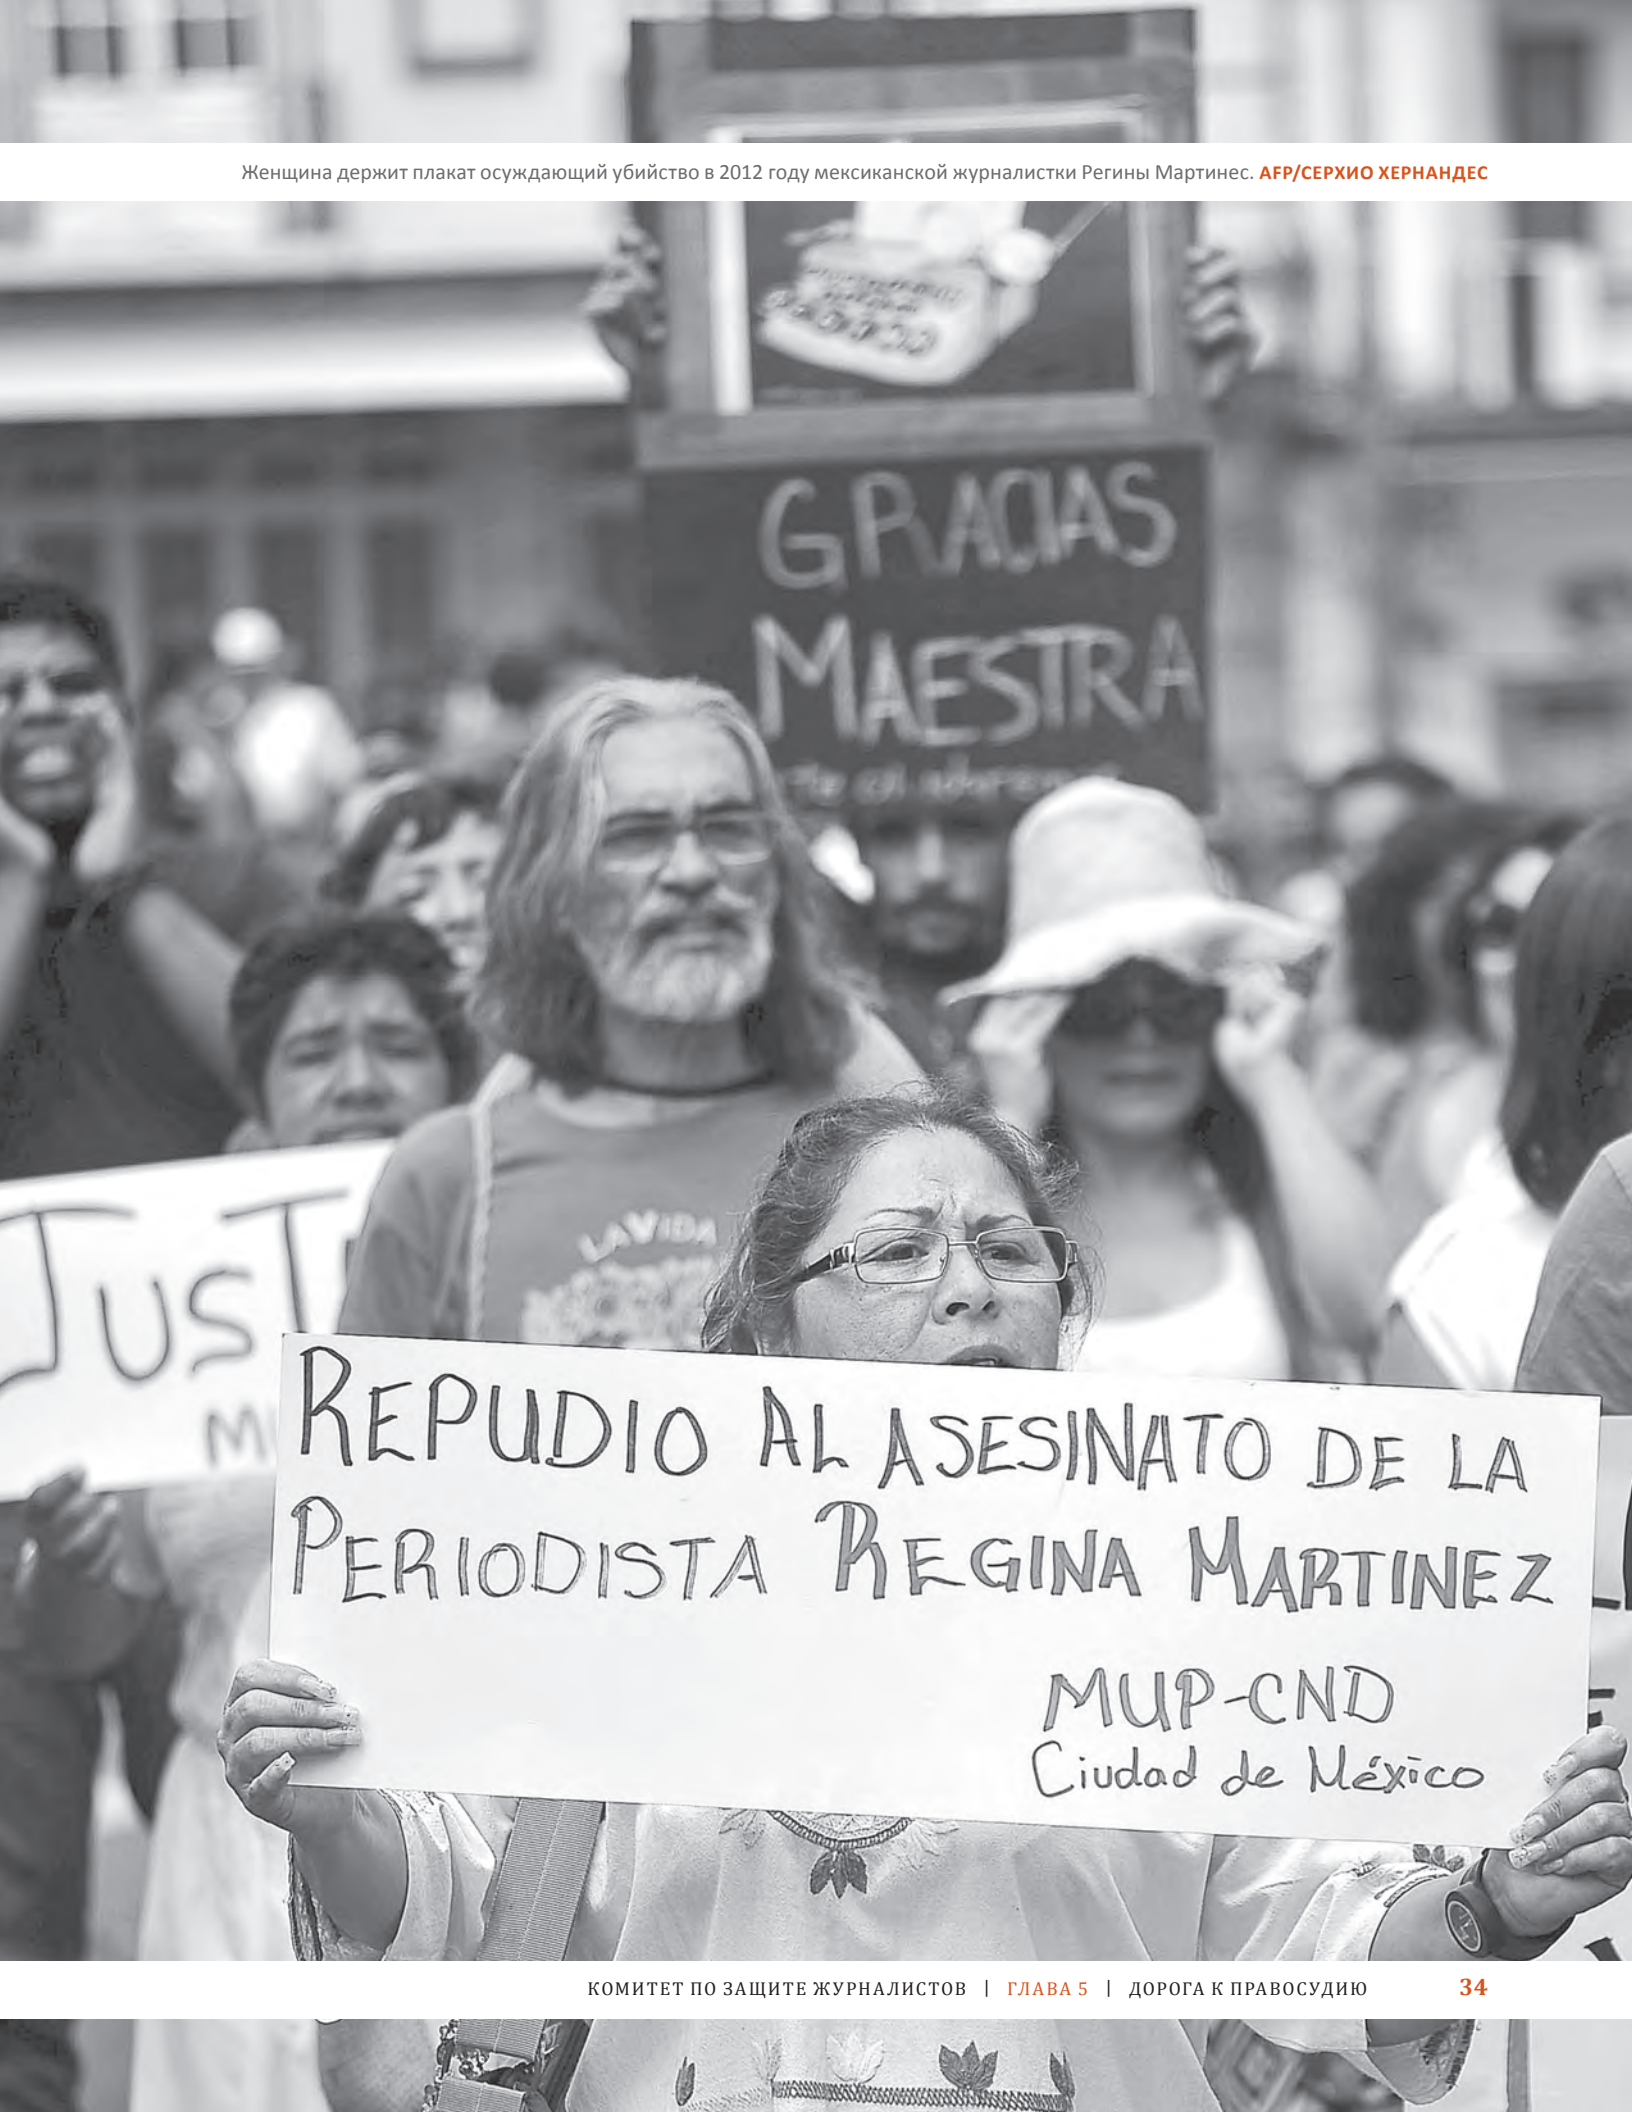 Женщина держит плакат осуждающий убийство в 2012 году мексиканской журналистки Регины Мартинес. AFP/СЕРХИО ХЕРНАНДЕС
GRACIAS
MAESTRA
LA VIDA
JUST
M
REPUDIO AL ASESINATO DE LA
PERIODISTA REGINA MARTINEZ
MUP-CND
Ciudad de México
КОМИТЕТ ПО ЗАЩИТЕ ЖУРНАЛИСТОВ | ГЛАВА 5 | ДОРОГА К ПРАВОСУДИЮ 34